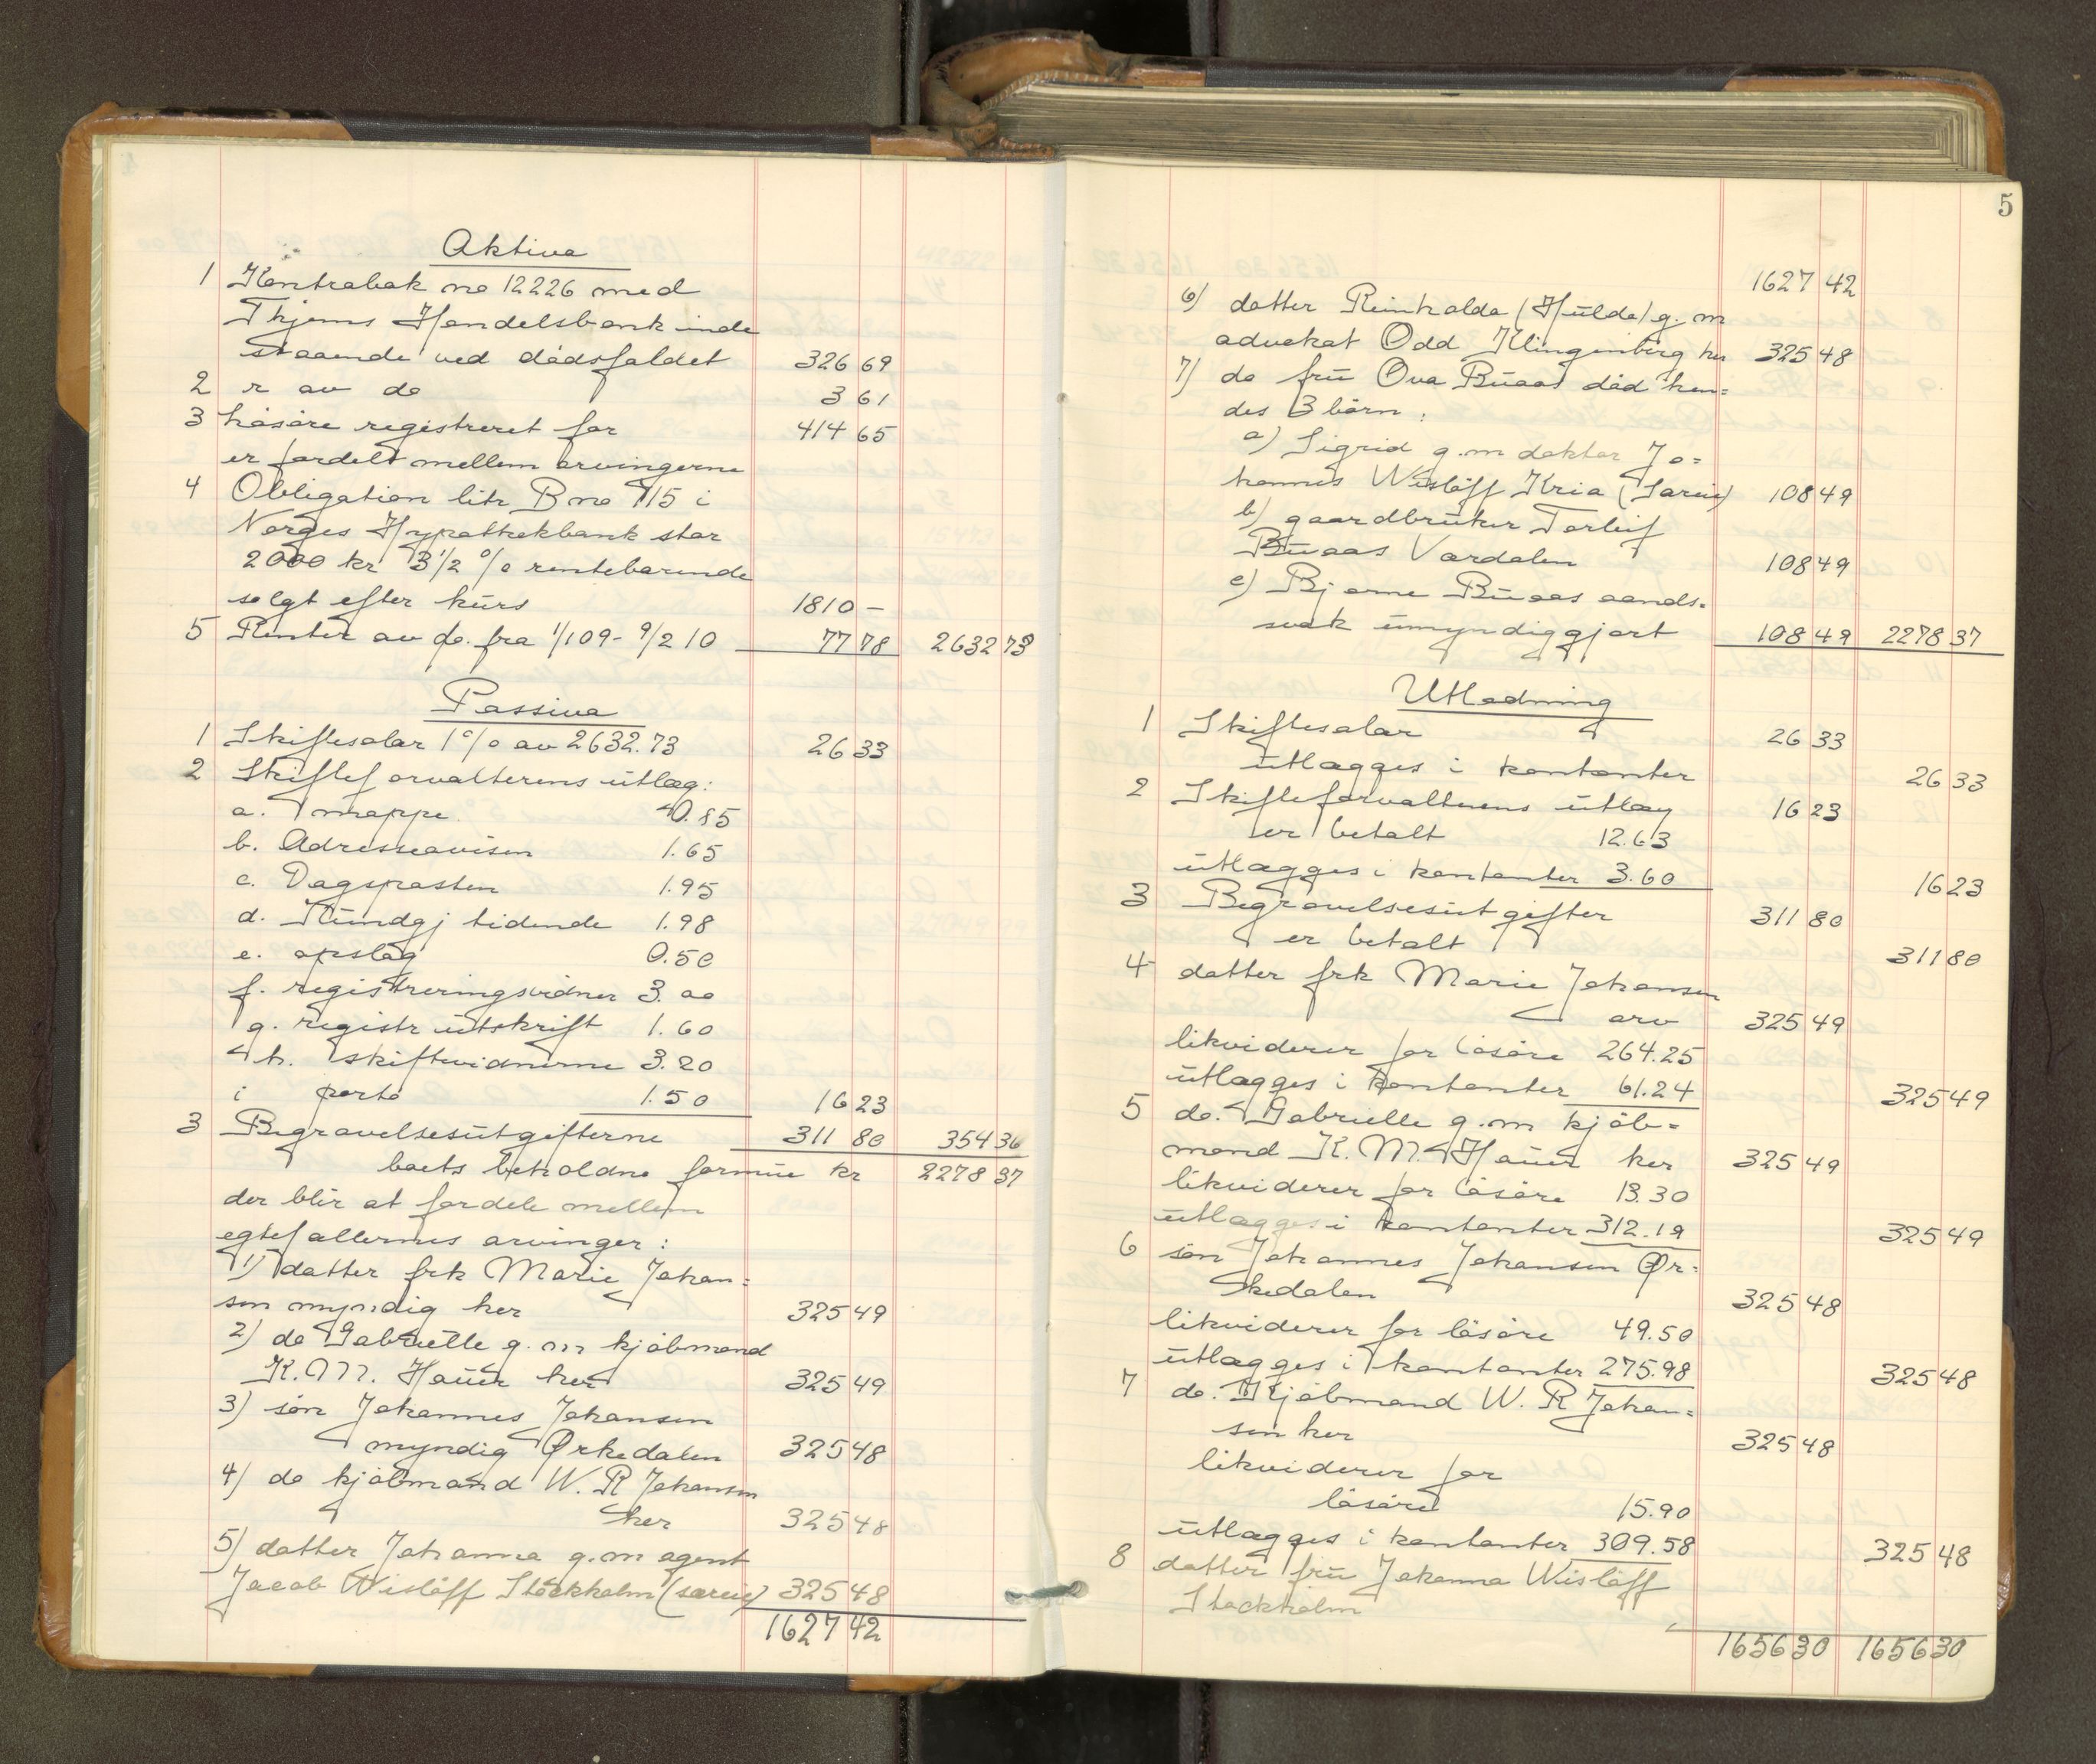 Aktiva
1 Kontrabok no 12226 med
Thjems Handelsbank inde
staaende ved dödsfaldet 326 69
2 r av do 3 61
3 Lösöre registreret for 414 65
er fordelt mellem arvingerne
4 Obligation litr B no 715 i
Norges Hypothekbank stor
2000 kr 3 1/2 % rentebærende
solgt efter kurs 1810 -
5 Renter av do. fra 1/1 09 - 9/2 10 77 78 2632 73
Passiva
1 Skiftesalær 1 % av 2632.73 26 33
2 Skifteforvalterens utlæg:
a. mappe 0.85
b. Adresseavisen 1.65
c. Dagsposten 1.95
d. Kundgj tidende 1.98
e. opslag 0.50
f. registreringsvidner 3.00
g. registr utskrift 1.60
h. skiftevidnerne 3.20
i porto 1.50 16 23
3 Begravelsesutgifterne 311 80 354 36
boets beholdne formue kr 2278 37
der blir at fordele mellem
egtefællernes arvinger:
1) datter frk Marie Johan=
sen myndig her 325 49
2) do Gabrielle g. m kjöbmand
K. M. Hauer her 325 49
3) sön Johannes Johansen
myndig Ørkedalen 325 48
4) do kjöbmand W. R Johansen
her 325 48
5) datter Johanna g. m agent
Jacob Wislöff Stockholm (særeie) 325 48
1627 42
5
1627 42
6) datter Reinholda (Hulda) g. m
advokat Odd Klingenberg her 325 48
7) do fru Ova Buaas död hen=
des 3 börn:
a) Sigrid g. m doktor Jo=
hannes Wislöff Kria (Særeie) 108 49
b) gaardbruker Torleif
Buaas Værdalen 108 49
c) Bjarne Buaas aands=
svak umyndiggjort 108 49 2278 37
Utlodning
1 Skiftesalær 26 33
utlægges i kontanter 26 33
2 Skifteforvalterens utlæg 16 23
er betalt 12.63
utlægges i kontanter 3.60 16 23
3 Begravelsesutgifter 311 80
er betalt 311 80
4 datter frk Marie Johansen
arv 325 49
likviderer for lösöre 264.25
utlægges i kontanter 61.24 325 49
5 do. Gabrielle g. m kjöb=
mand K. M. Hauer her 325 49
likviderer for lösöre 13.30
utlægges i kontanter 312.19 325 49
6 sön Johannes Johansen Ør=
kedalen 325 48
likviderer for lösöre 49.50
utlægges i kontanter 275.98 325 48
7 do. Kjöbmand W. R Johan=
sen her 325 48
likviderer for
lösöre 15.90
utlægges i kontanter 309.58 325 48
8 datter fru Johanna Wislöff
Stockholm
1656 30 1656 30